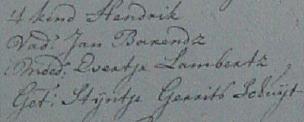 4 kind Hendrik
Vad: Jan Barendz
Moed: Evertje Lambertz
Get: Styntje Gerrits Schuyt